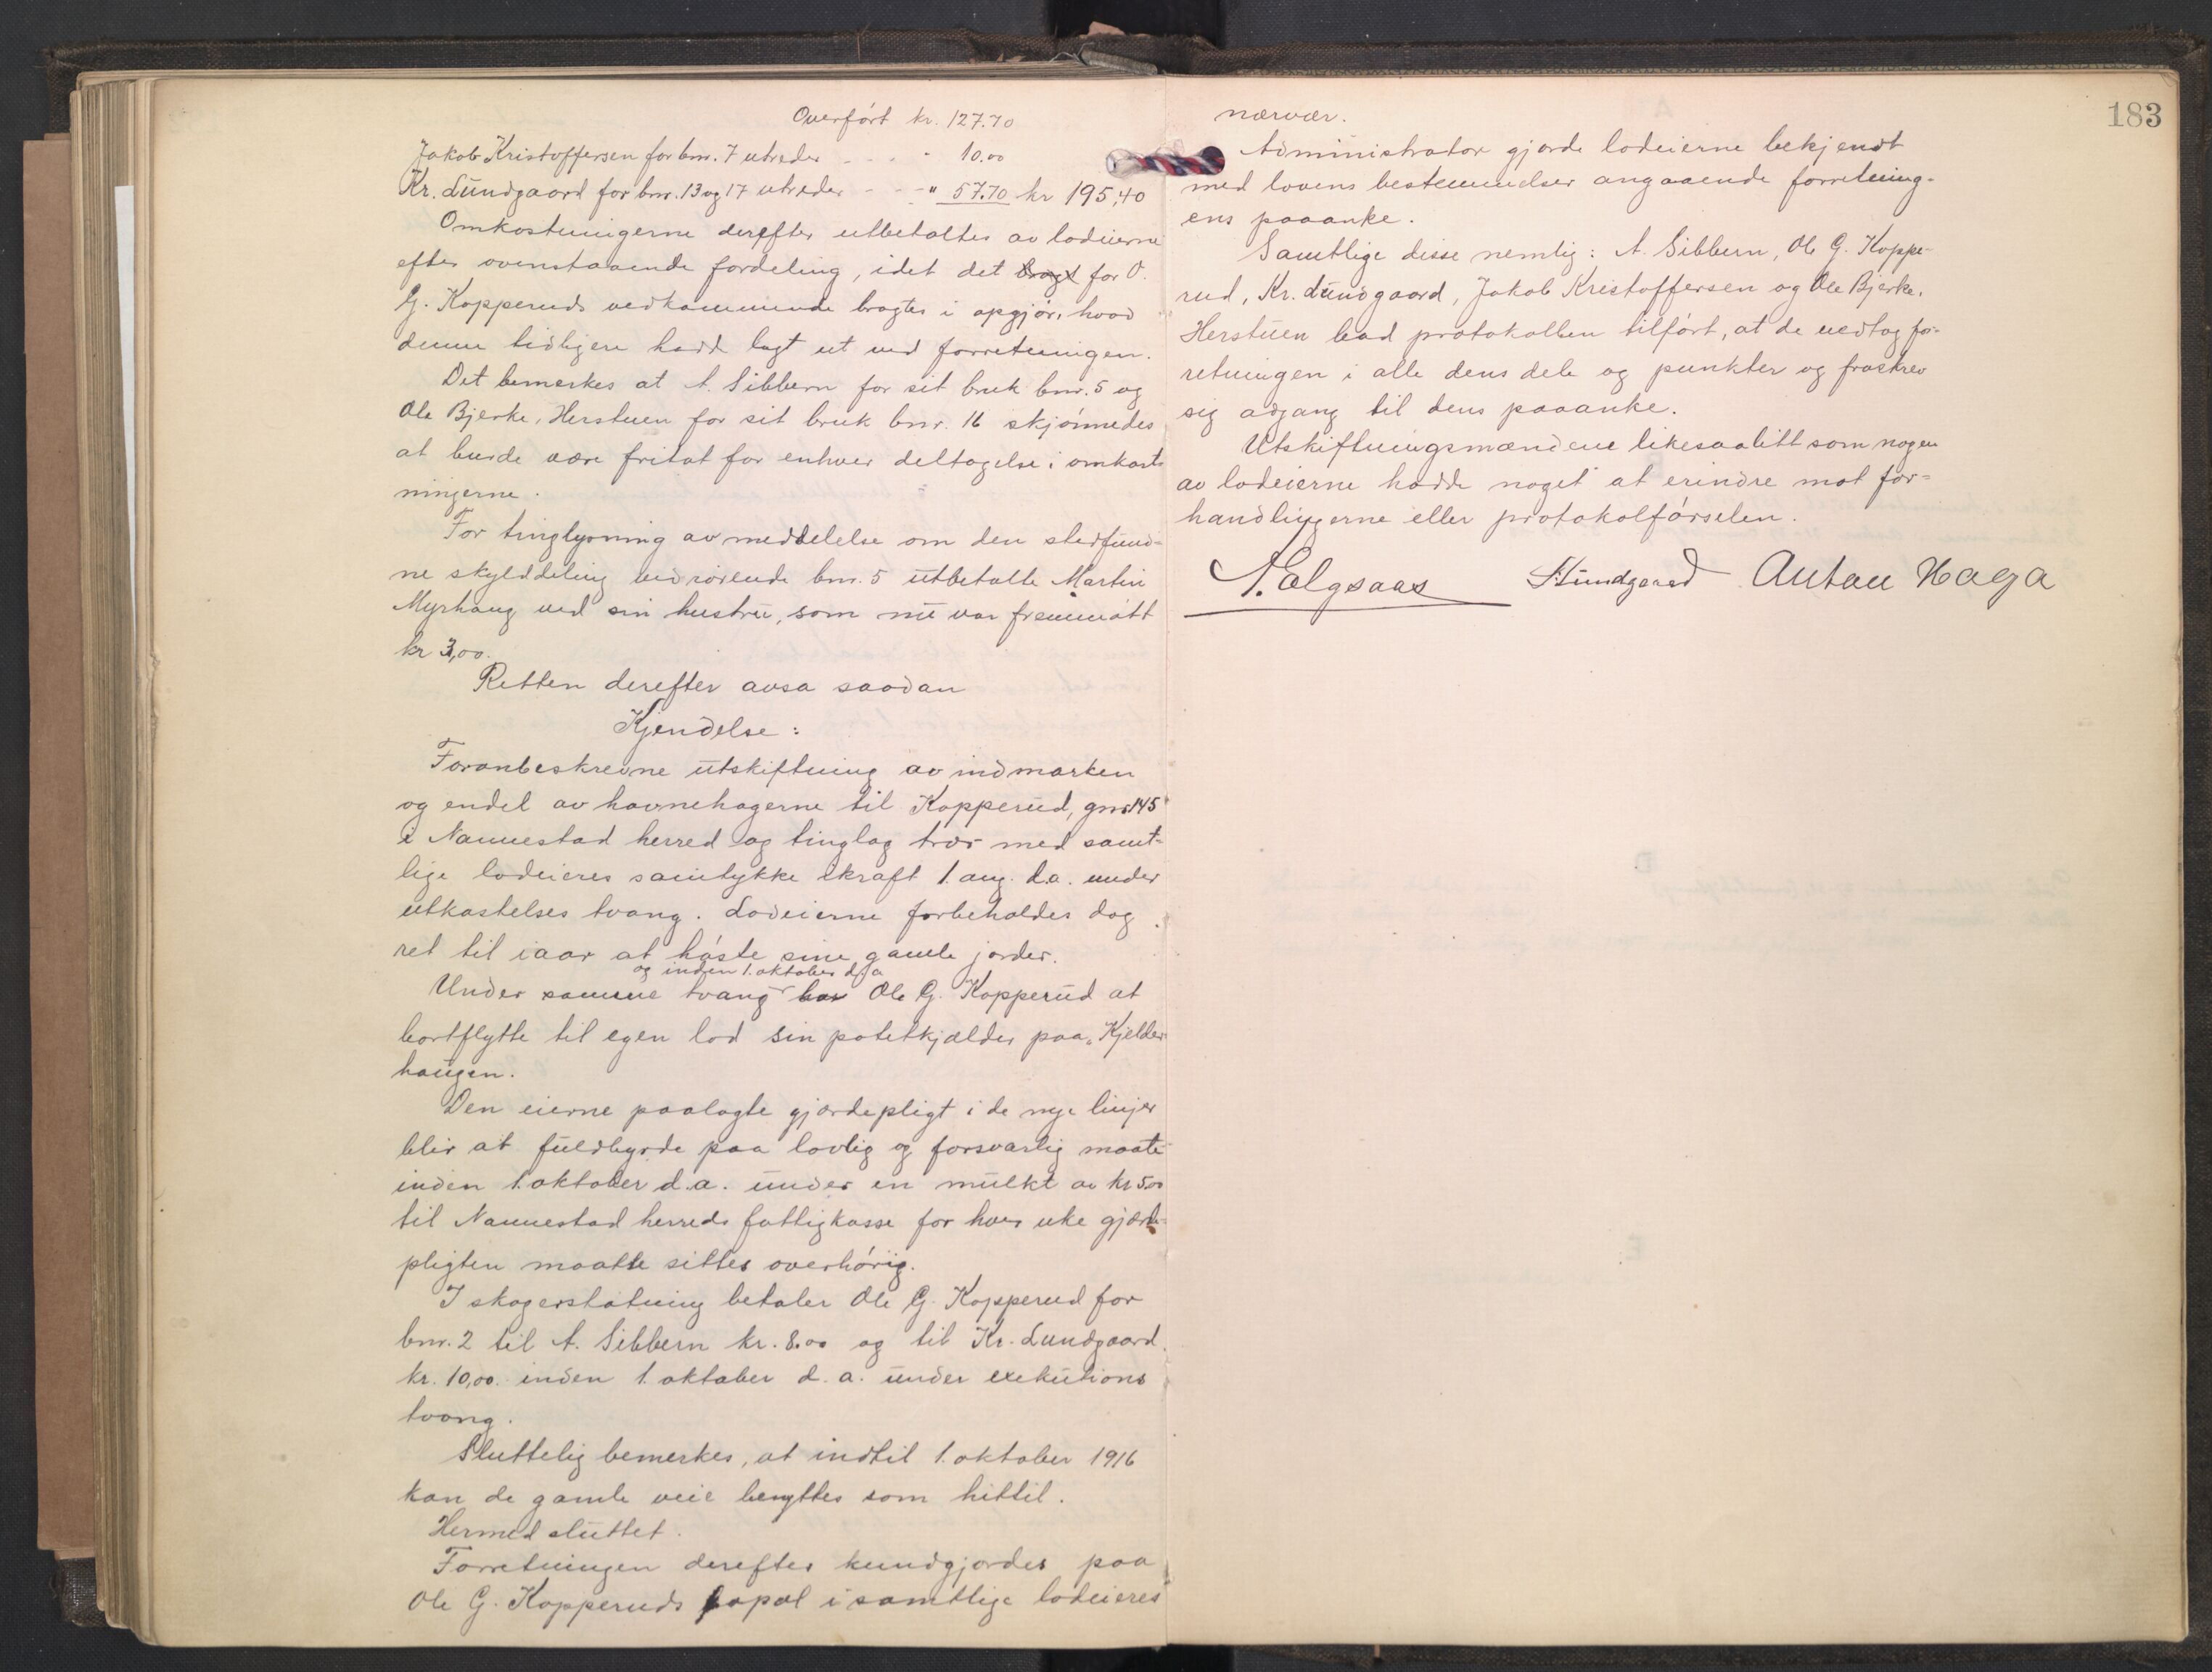 Overført kr. 127.70
Jakob Kristoffersen for bnr. 7 utreder - - - " 10.00
Kr. Lundgaard for bnr. 13 og 17 utreder - - - " 57.70 kr 195,40
Omkostningerne derefter utbetaltes av lodeierne
efter ovenstaaende fordeling, idet det bragt for O.
G. Kopperuds vedkommende bragtes i opgjør, hvad
denne tidligere hadde lagt ut ved forretningen.
Det bemerkes at A. Sibbern for sit bruk bnr. 5 og
Ole Bjerke, Herstuen for sit bruk bnr. 16 skjønnedes
at burde være fritat for enhver deltagelse i omkost-
ningerne.
For tinglysning av meddelelse om den stedfund-
ne skylddeling vedrørende bnr. 5 utbetalte Martin
Myrhaug ved sin hustru, som nu var fremmøtt
kr 3,00.
Retten derefter avsa saadan
Kjendelse:
Foranbeskrevne utskiftning av indmarken
og endel av havnehagerne til Kopperud, gnr 145
i Nannestad herred og tinglag trær med samt-
lige lodeieres samtykke ikraft 1. aug. d.a. under
utkastelses tvang. Lodeierne forbeholdes dog
ret til iaar at høste sine gamle jorder.
og inden 1. oktober d.a
Under samme tvang har Ole G. Kopperud at
bortflytte til egen lod sin potetkjælder paa "Kjelder-
haugen.
Den eierne paalagte gjærdepligt i de nye linjer
blir at fuldbyrde paa lovlig og forsvarlig maate
inden 1. oktober d.a. under en mulkt av kr 5.00
til Nannestad herreds fattigkasse for hver uke gjærde-
pligten maatte sittes overhørig.
I skogerstatning betaler Ole G. Kopperud for
bnr. 2 til A. Sibbern kr. 8.00 og til Kr. Lundgaard
kr. 10,00. inden 1. oktober d. a. under exekutions
tvang.
Sluttelig bemerkes, at indtil 1. oktober 1916
kan de gamle veie benyttes som hittil.
Hermed sluttet.
Forretningen derefter kundgjordes paa
Ole G. Kopperuds bopæl i samtlige lodeieres
183
nærvær.
Administrator gjorde lodeierne bekjendt
med lovens bestemmelser angaaende forretning-
ens paaanke.
Samtlige disse nemlig: A. Sibbern, Ole G. Koppe-
rud, Kr. Lundgaard, Jakob Kristoffersen og Ole Bjerke,
Herstuen bad protokollen tilført, at de vedtog for-
retningen i alle dens dele og punkter og fraskrev
sig adgang til dens paaanke.
Utskiftningsmændene likesaalitt som nogen
av lodeierne hadde noget at erindre mot for-
handlingerne eller protokolførselen.
Ælgsaas Lundgaard Anton Haga